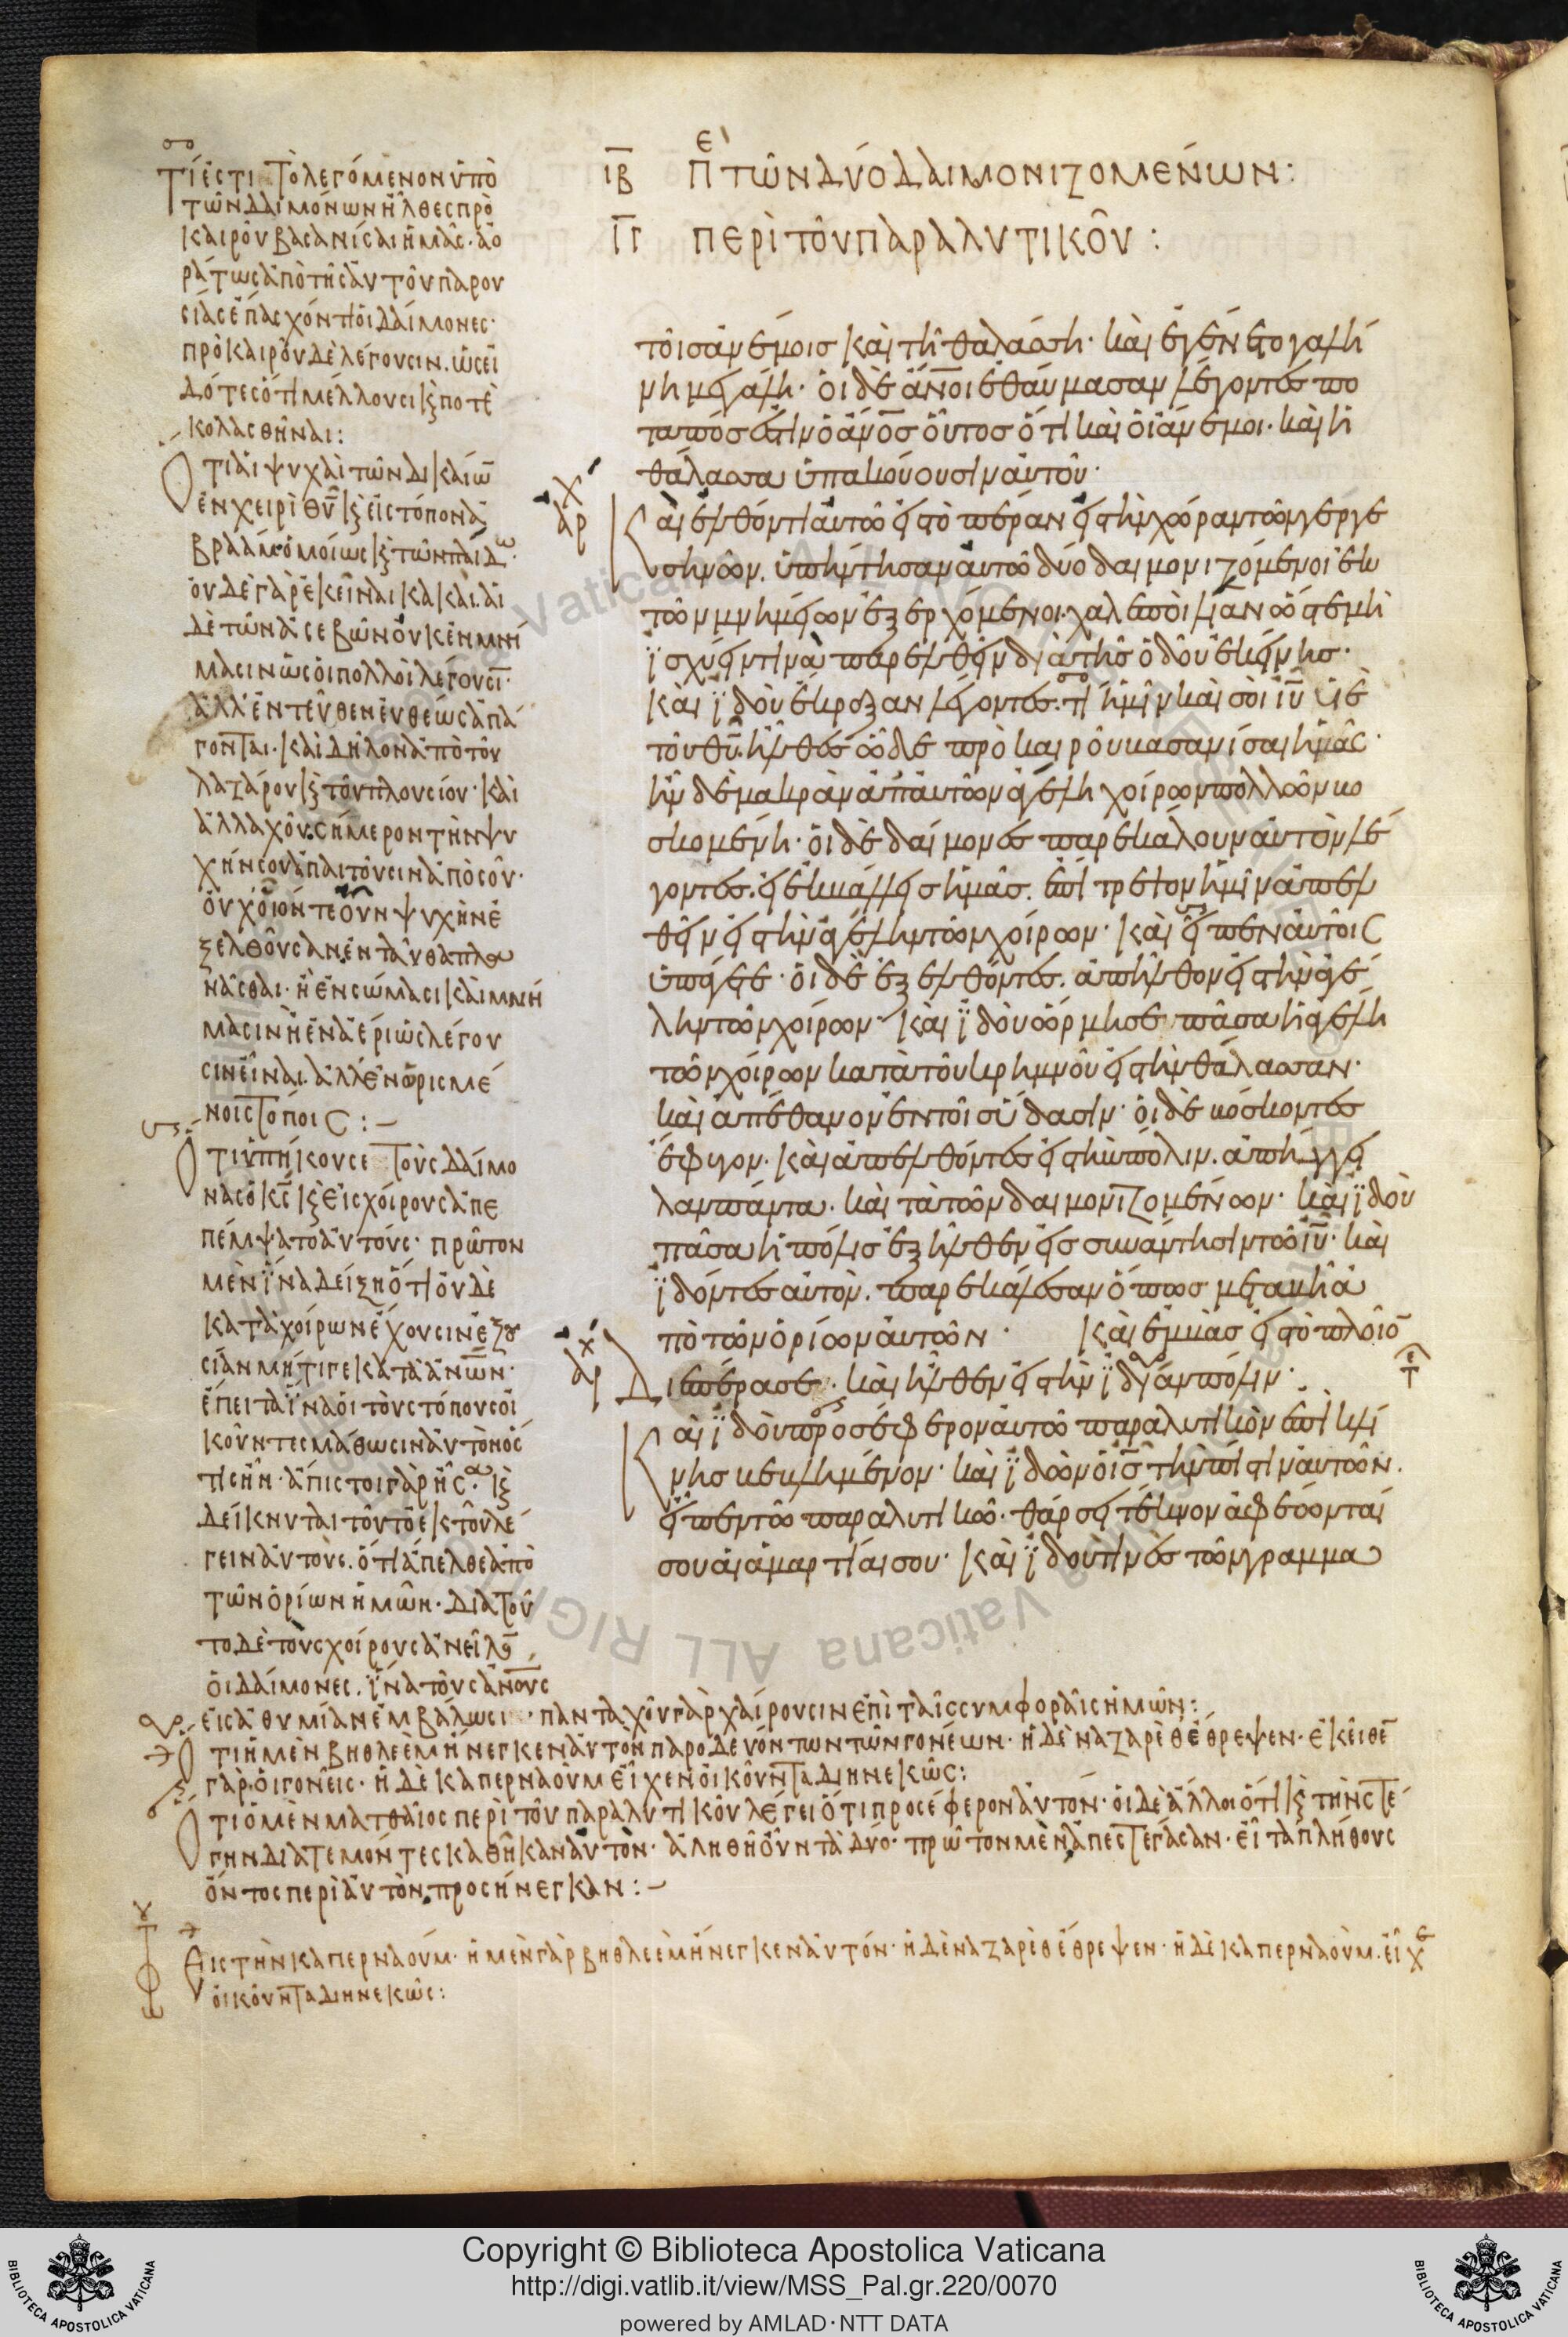 ιβ π̅ε τῶν δύο δαιμονιζομένων:
ιγ περὶ τοῦ παραλυτικοῦ:
τοῖσ ἀνέμοισ καὶ τῆ θαλάσση· καὶ ἐγένετο γαλή
νη μεγάλη· οἱ δὲ ἄν̅οι ἐθαύμασαν λέγοντεσ πο
ταπόσ ἐστιν ὁ ἄνο̅σ οὗτοσ ὅτι καὶ οἱ ἄνεμοι· καὶ ἡ
θάλασσα ὑπακούουσιν αὐτοῦ·
Καὶ ἐλθόντι αὐτῶ εἰσ τὸ πέραν εἰσ τὴν χώραν τῶν γεργε
σηνῶν. ὑπήντησαν αὐτῶ δύο δαιμονιζόμενοι ἐκ
τῶν μνημείων ἐξερχόμενοι· χαλεποὶ λίαν ὥστε μὴ
ἰσχύειν τινὰ παρελθεῖν διὰ τῆσ ὁδοῦ ἐκείνησ·
καὶ ἰδοὺ ἔκραξαν λέγοντεσ. τί ἡμῖν καὶ σοὶ ιυ̅ υἱὲ
τοῦ θυ̅. ἦλθεσ ὧδε πρὸ καιροῦ βασανίσαι ἡμᾶσ·
ἦν δὲ μακρὰν ἀπ' αὐτῶν ἀγέλη χοίρων πολλῶν βο
σκομένη· οἱ δὲ δαίμονεσ παρεκάλουν αὐτὸν λέ
γοντεσ. εἰ ἐκβάλλεισ ἡμᾶσ. ἐπίτρεψον ἡμῖν ἀπελ
θεῖν εἰσ τὴν ἀγέλην τῶν χοίρων· καὶ εἶπεν αὐτοῖσ
ὑπάγετε· οἱ δὲ ἐξελθόντεσ. ἀπῆλθον εἰσ τὴν ἀγέ
λην τῶν χοίρων· καὶ ἰδοὺ ὥρμησε πᾶσα ἡ ἀγέλη
τῶν χοίρων κατὰ τοῦ κρημνοῦ εἰσ τὴν θάλασσαν·
καὶ ἀπέθανον ἐν τοῖσ ὕδασιν· οἱ δὲ βόσκοντεσ
ἔφυγον· καὶ ἀπελθόντεσ εἰσ τὴν πόλιν. ἀπήγγει
λαν πάντα. καὶ τὰ τῶν δαιμονιζομένων· καὶ ἰδοὺ
πᾶσα ἡ πόλισ ἐξῆλθεν εἰσ συνάντησιν τῶ ιυ̅· καὶ
ἰδόντεσ αὐτὸν. παρεκάλεσαν ὅπωσ μεταβῆ ἀ
πὸ τῶν ὁρίων αὐτῶν· Καὶ ἐμβὰσ εἰσ τὸ πλοῖο̅
Διεπέρασε· καὶ ἦλθεν εἰσ τὴν ἰδίαν πόλιν·
Καὶ ἰδοὺ προσέφερον αὐτῶ παραλυτικὸν ἐπὶ κλί
νησ βεβλημένον· καὶ ἰδὼν ὁ ισ̅ τὴν πίστιν αὐτῶν.
εἶπεν τῶ παραλυτικῶ· θάρσει τέκνον ἀφέωνταί
σου αἱ ἁμαρτίαι σου· καὶ ἰδού τινεσ τῶν γραμμα
Τί ἐστι τὸ λεγόμενον ὑπὸ
τῶν δαιμόνων ἦλθες πρὸ
καιροῦ βασανίσαι ἡμᾶς· ἀο
ράτως ἀπὸ τῆς αὐτοῦ παρου
σίας ἐπάσχόν τι οἱ δαίμονες·
πρὸ καιροῦ δὲ λέγουσιν. ὡς εἰ
δότες ὅτι μέλλουσι κ ποτὲ
κολασθῆναι:
Ὅτι αἱ ψυχαὶ τῶν δικαίω̅
ἐν χειρὶ θυ̅ κ εἰς τόπον ἀ
βραάμ· ὁμοίως κ τῶν παίδω·
οὐδὲ γὰρ ἐκεῖναι κακαὶ. αἱ
δὲ τῶν ἀσεβῶν οὐκ ἐν μνή
μασιν ὡς οἱ πολλοὶ λέγουσι·
ἀλλ' ἐντεῦθεν εὐθέως ἀπά
γονται. καὶ δῆλον ἀπὸ τοῦ
λαζάρου κ τοῦ πλουσίου· καὶ
ἀλλαχοῦ. σήμερον τὴν ψυ
χήν σου ἀπαιτοῦσιν ἀπὸ σοῦ·
οὐχ οἷόν τε οὖν ψυχὴν ἐ
ξελθοῦσαν ἐνταῦθα πλα
νᾶσθαι· ἢ ἐν σώμασι κ αἱ μνή
μασιν ἢ ἐν ἀέρι ὡς λέγου
σιν εἶναι. ἀλλ' ἐν ὡρισμέ
νοις τόποις:-
Ὅτι ὑπήκουσε τοὺς δαίμο
νας ὁ κς̅ κ εἰς χοίρους ἀπε
πέμψατο αὐτούς· πρῶτον
μὲν ἵνα δείξη ὅτι οὐδὲ
κατὰ χοίρων ἔχουσιν ἐξου
σίαν μήτιγε κατὰ ἀνω̅ν·
ἔπειτα ἵνα οἱ τοὺς τόπους οἰ
κοῦντες μάθωσιν αὐτὸν ὅς
τις ἦν· ἄπιστοι γὰρ ἦσα· κ
δείκνυται τοῦτο ἐκ τοῦ λέ
γειν αὐτοὺς. ὅτι ἄπελθε ἀπὸ
τῶν ὁρίων ἡμῶν· διατοῦ
το δὲ τοὺς χοίρους ἀνεῖλο̅
οἱ δαίμονες. ἵνα τοὺς ἀνο̅υς
εἰς ἀθυμίαν ἐμβάλωσι· πανταχοῦ γὰρ χαίρουσιν ἐπὶ ταῖς συμφοραῖς ἡμῶν:
Ὅτι ἡ μὲν βηθλεὲμ ἤνεγκεν αὐτὸν παροδευόντων τῶν γονέων· ἡ δὲ ναζαρὲθ ἔθρεψεν· ἐκεῖθε̅
γὰρ οἱ γονεῖς· ἡ δὲ καπερναοὺμ εἶχεν οἰκοῦντα διηνεκῶς:
Ὅτι ὁ μὲν ματθαῖος περὶ τοῦ παραλυτικοῦ λέγει ὅτι προσέφερον αὐτόν· οἱ δὲ ἄλλοι ὅτι κ τὴν στέ
γην διατεμόντες καθῆκαν αὐτὸν· ἀληθῆ οὖν τὰ δύο· πρῶτον μὲν ἀπεστέγασαν· εἶτα πλήθους
ὄντος περὶ αὐτὸν προσήνεγκαν:-
Εἰς τὴν καπερναούμ· ἡ μὲν γὰρ βηθλεὲμ ἤνεγκεν αὐτόν· ἡ δὲ ναζαρὲθ ἔθρεψεν· ἡ δὲ καπερναοὺμ. εἶχε
οἰκοῦντα διηνεκῶς:
Copyright © Biblioteca Apostolica Vaticana
http://digi.vatlib.it/view/MSS_Pal.gr.220/0070
powered by AMLAD·NTT DATA
BIBLIOTECA APOSTOLICA VATICANA
BIBLIOTECA APOSTOLICA VATICANA